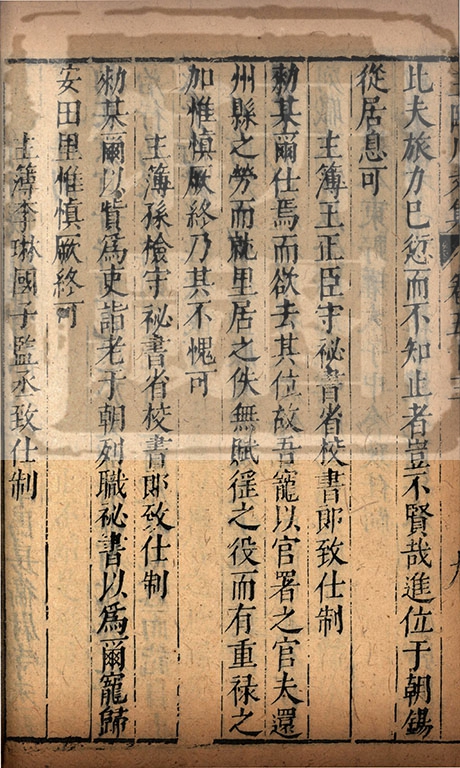 比夫旅力已愆而不知止者豈不賢哉進位于朝錫
從居息可
主簿王正臣守祕書省校書郎致仕制
勑某爾仕焉而欲去其位故吾寵以官署之官夫還
州縣之勞而就里居之佚無賦徭之役而有重祿之
加惟慎厥終乃其不愧可
主簿孫愴守祕書省校書郎致仕制
勑某爾以貲為吏詣老于朝列職祕書以為爾寵歸
安田里惟慎厥終可
主簿李琳國子監丞致仕制